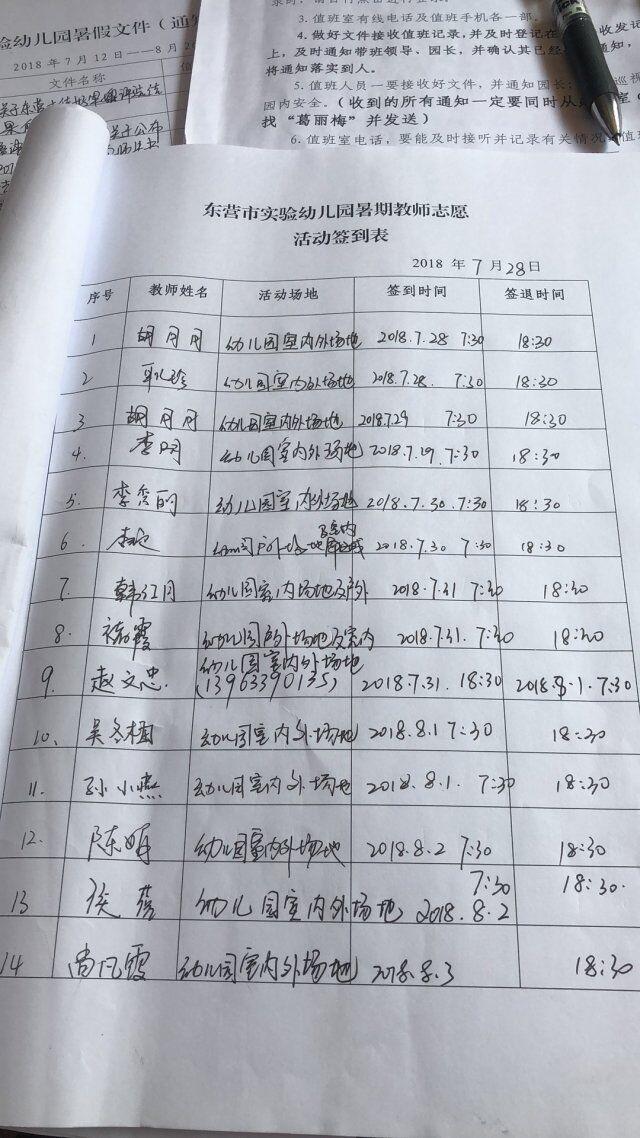 验幼儿园暑假文件（通知
2018 年 7 月 12 日——8 月 2
文件名称
3. 值班室有线电话及值班手机各一部.
4. 做好文件接收值班记录，并及时登记在
收发记
上，及时通知带班领导、园长，并确认其已经
通知，
将通知落实到人。
5. 值班人员一要接收好文件，并通知园长；
巡视
园内安全。（收到的所有通知一定要同时从
室（
找“葛丽梅”并发送）
6. 值班室电话，要能及时接听并记录有关情况
值班
东营市实验幼儿园暑期教师志愿
活动签到表
2018 年 7 月 28 日
序号 教师姓名 活动场地 签到时间 签退时间
1 胡月月 幼儿园室内外场地 2018.7.28 7:30 18:30
2 幼儿园室内外场地 2018.7.28. 7:30 18:30
3 胡月月 幼儿园室内外场地 2018.7.29 7:30 18:30
4. 李 幼儿园室内外场地 2018.7.29. 7:30 18:30
5. 李 丽 幼儿园室内外场地 2018.7.30. 7:30 18:30
6. 2018.7.30 7:30 18:30
7. 韩红月 幼儿园室内场地及户外 2018.7.31 7:30 18:30
8. 褚霞 幼儿园户外场地及室内 2018.7.31. 7:30 18:30
幼儿园室内外场地
9. 赵文忠. (13963390135) 2018.7.31. 18:30 2018.8.1. 7:30
10. 吴冬梅 幼儿园室内外场地 2018.8.1 7:30 18:30
11. 孙小燕 幼儿园室内外场地 2018.8.1. 7:30 18:30
12. 陈娟 幼儿园室内外场地 2018.8.2 7:30 18:30
7:30 18:30.
13 侯蓓 幼儿园室内外场地 2018.8.2
14 尚凡霞 幼儿园室内外场地 2018.8.3 18:30